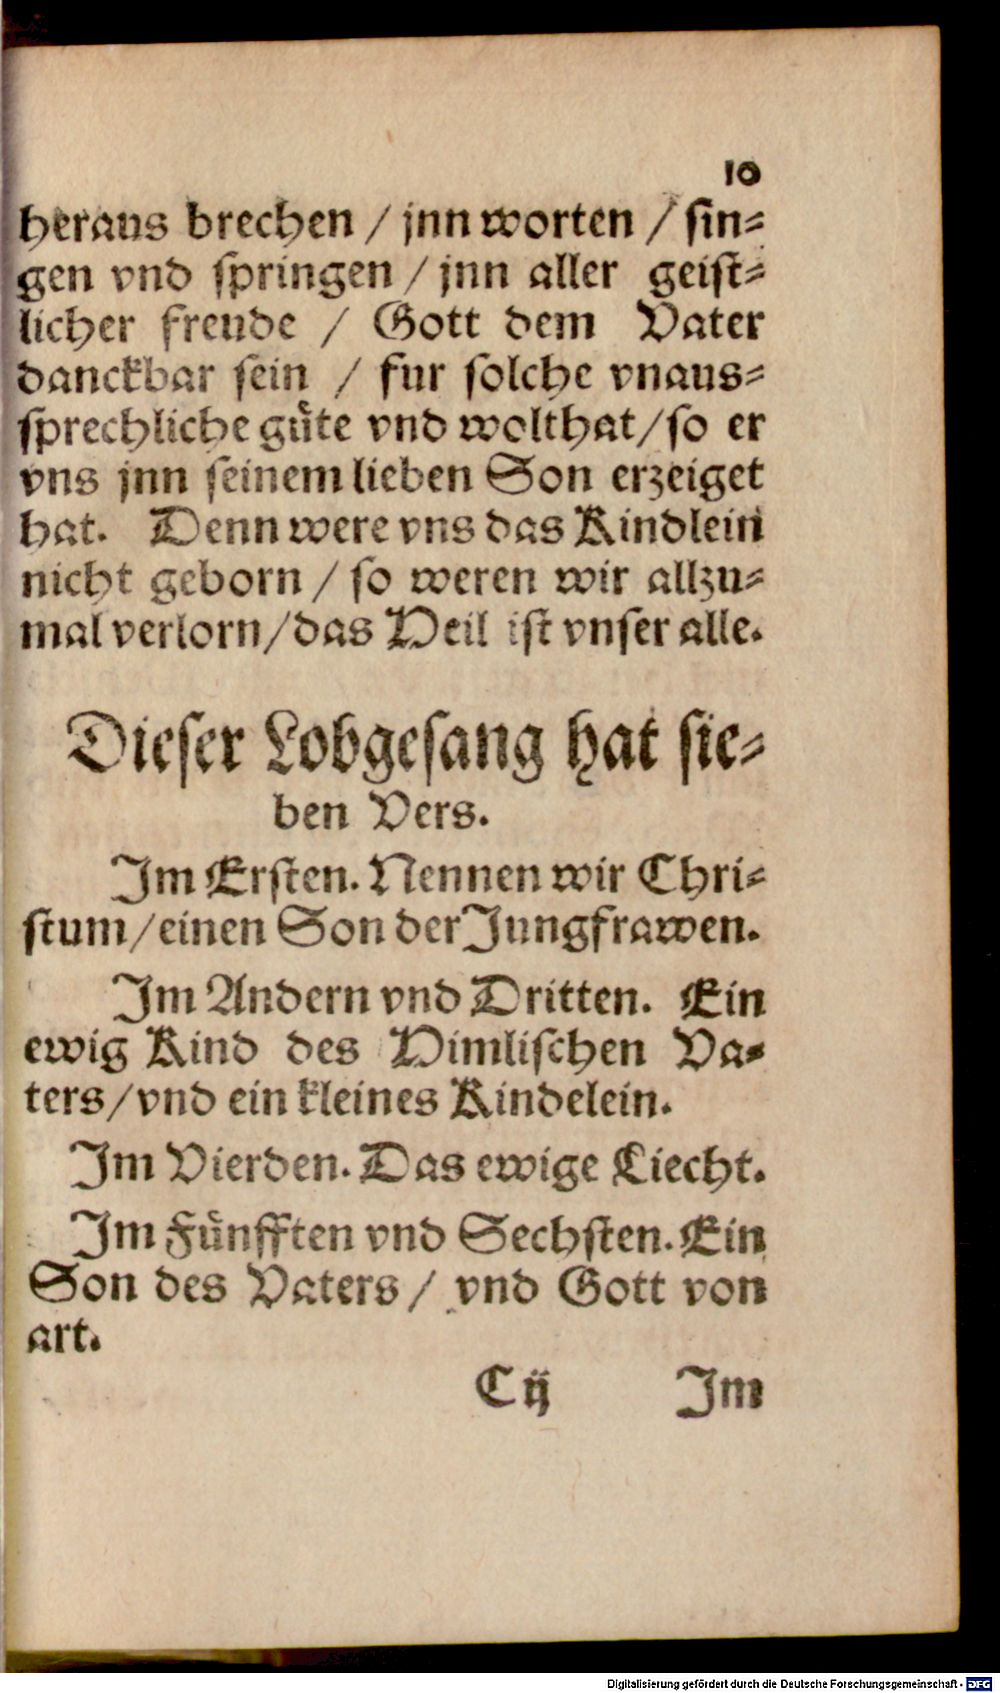 10
heraus brechen / jnn worten / sin⸗
gen vnd springen / jnn aller geist⸗
licher freude / Gott dem Vater
danckbar sein / fur solche vnaus⸗
sprechliche güte vnd wolthat / so er
vns jnn seinem lieben Son erzeiget
hat. Denn were vns das Kindlein
nicht geborn / so weren wir allzu⸗
mal verlorn / das Heil ist vnser alle.
Dieser Lobgesang hat sie⸗
ben Vers.
Im Ersten. Nennen wir Chri⸗
stum / einen Son der Jungfrawen.
Im Andern vnd Dritten. Ein
ewig Kind des Himlischen Va⸗
ters / vnd ein kleines Kindelein.
Im Vierden. Das ewige Liecht.
Im Fünfften vnd Sechsten. Ein
Son des Vaters / vnd Gott von
art.
C ij Im
Digitalisierung gefördert durch die Deutsche Forschungsgemeinschaft - DFG